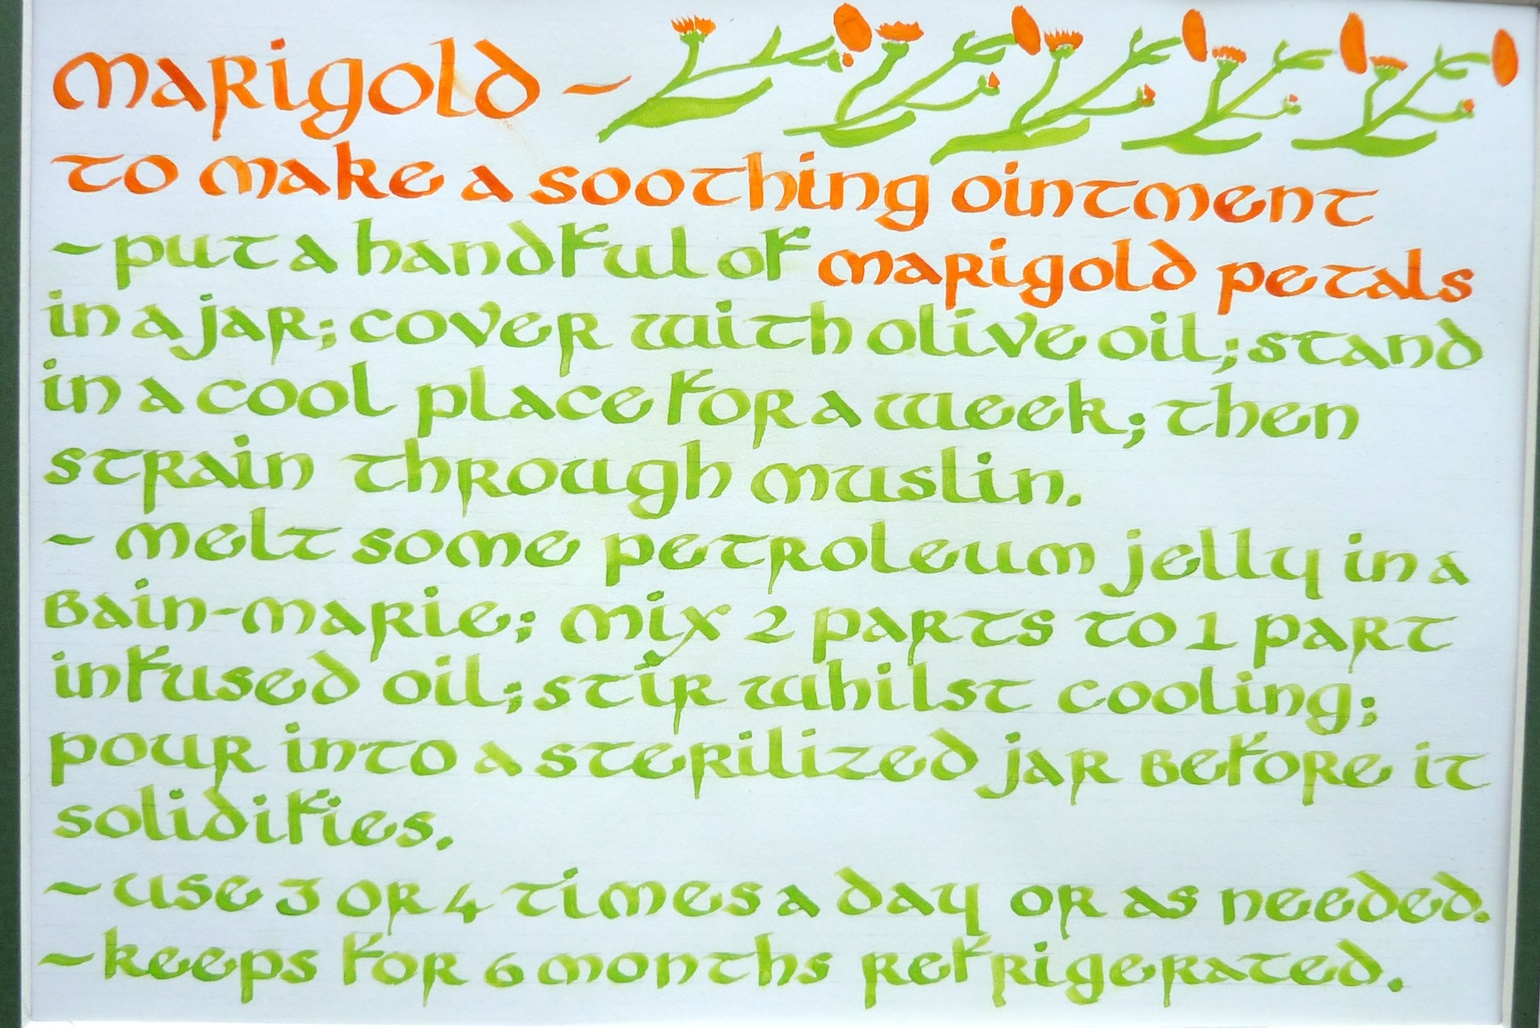 Marigold ~
to make a soothing ointment
~ put a handful of marigold petals
in a jar; cover with olive oil; stand
in a cool place for a week; then
strain through muslin.
~ melt some petroleum jelly in a
bain-marie; mix 2 parts to 1 part
infused oil; stir whilst cooling;
pour into a sterilized jar before it
solidifies.
~ use 3 or 4 times a day or as needed.
~ keeps for 6 months refrigerated.